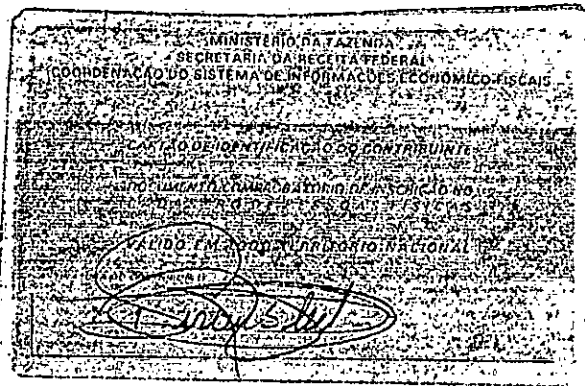 MINISTÉRIO DA FAZENDA
SECRETARIA DA RECEITA FEDERAL
COORDENAÇÃO DO SISTEMA DE INFORMAÇÕES ECONÔMICO-FISCAIS
CARTÃO DE IDENTIFICAÇÃO DO CONTRIBUINTE
DOCUMENTO COMPROBATÓRIO DE INSCRIÇÃO NO
CADASTRO DE PESSOAS FÍSICAS
VÁLIDO EM TODO TERRITÓRIO NACIONAL